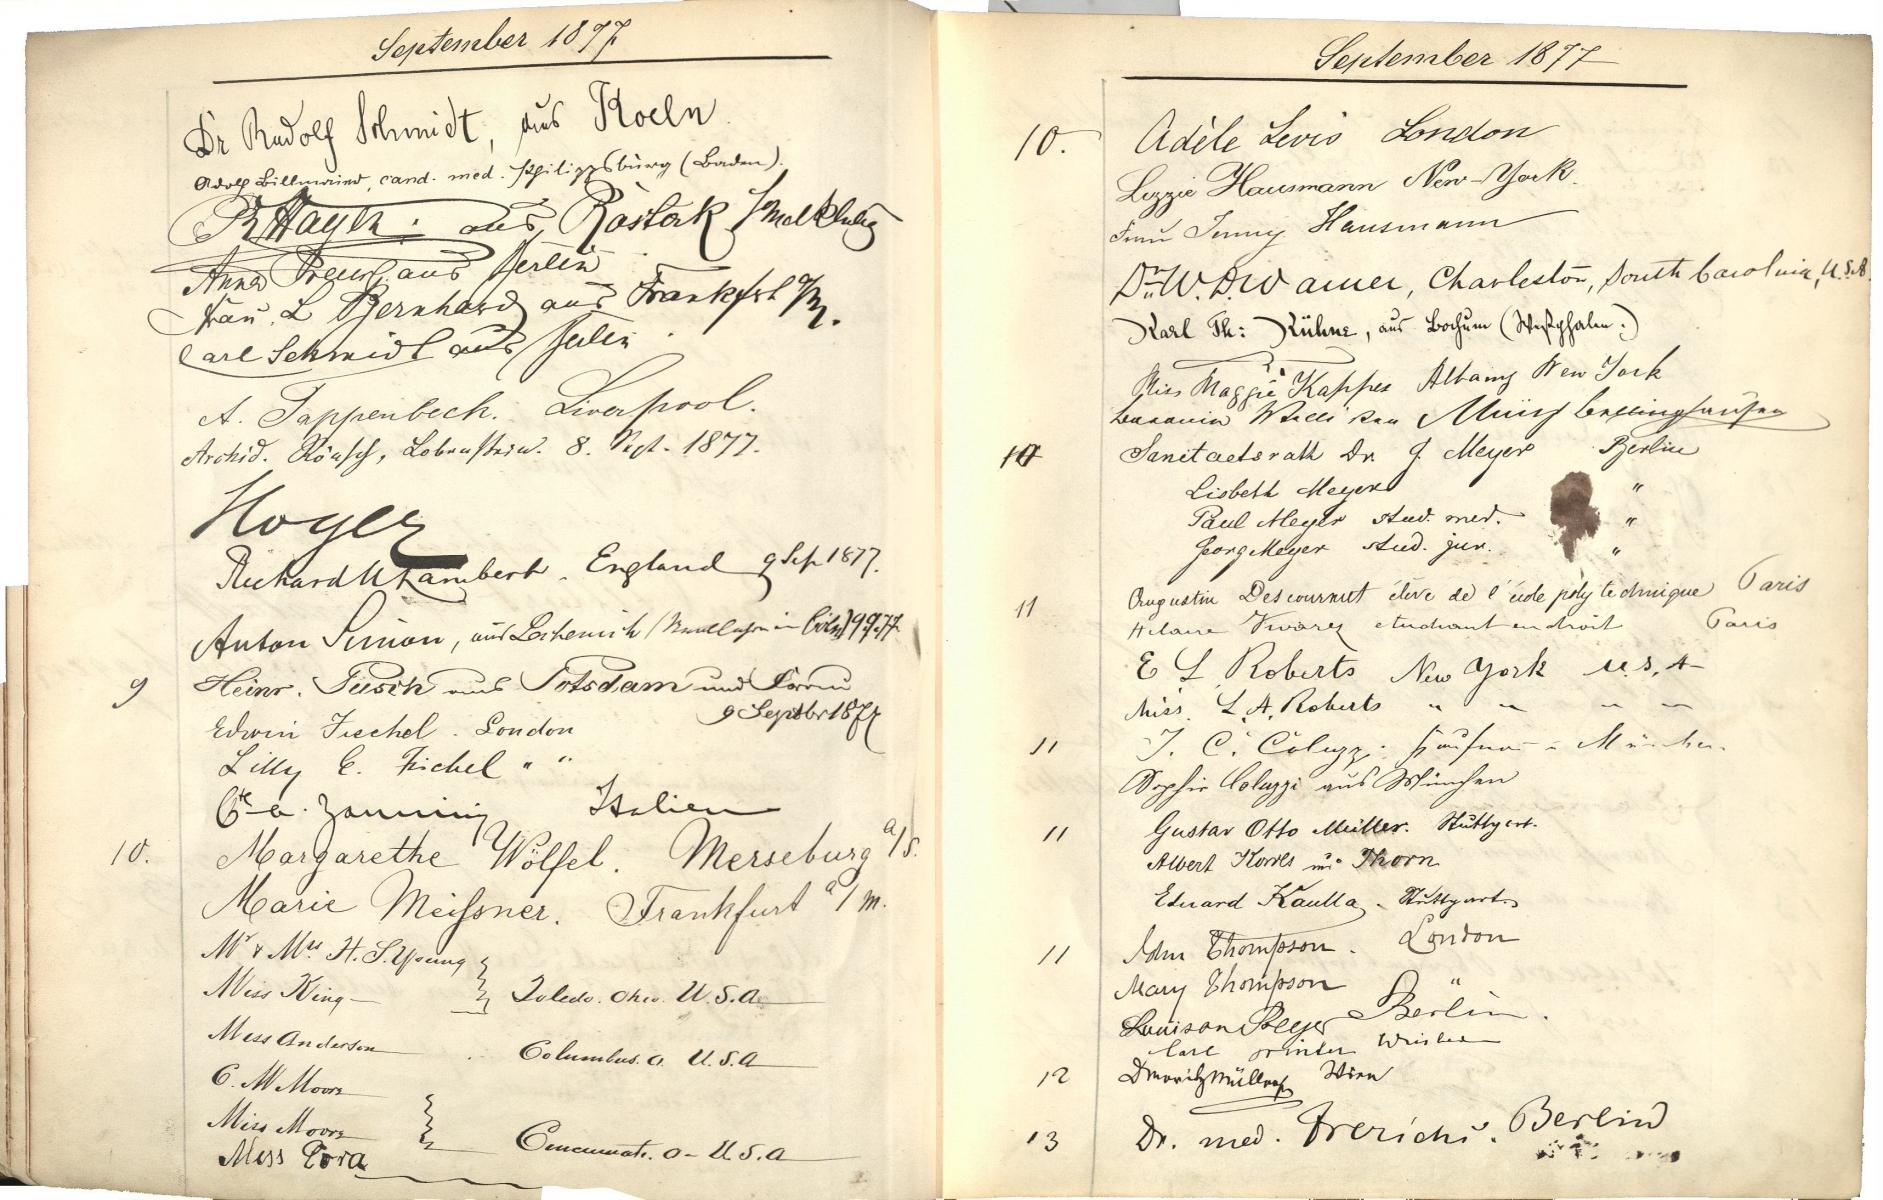 September 1877
Dr Rudolf Schmidt, aus Koeln.
Adolf Billmaier, cand. med. Philippsburg (Baden).
aus Rostock
Anna Preuß aus Berlin
Frau L Bernhard aus Frankfurt a/M.
Carl Schmidt aus Berlin
A. Tappenbeck. Liverpool.
Archid. Lobenstein. 8. Sept. 1877.
Hoyer
Richard Lambert. England 9 Sep 1877.
Anton Simon, aus Lechenich 9.9.77
9 Heinr. Püsch aus Potsdam und
9 Septbr 1877
Edwin Fischel. London
Lilly E. Fischel " "
Italien
10. Margarethe Wölfel. Merseburg a/S.
Marie Meißner. Frankfurt a/M.
Mr & Mrs H. S. Young
Miss King Toledo. Ohio. U.S.A
Miss Anderson Columbus. O. U.S.A
C. M Moore
Miss Moore Cincinnati. O - U.S.A
Miss Cora
September 1877
10. Adèle Levis London
Lizzie Hausmann New-York.
Frau Jenny Hausmann
Charleston, South Carolina, U.S.A
Karl Th: Kühne, aus Bochum (Westphalen.)
Miss Maggie Kappes Albany New York
10 Sanitaetsrath Dr. J. Meyer Berlin
Lisbeth Meyer "
Paul Meyer stud. med. "
Georg Meyer stud. jur. "
11 Augustin Descournut élève de l'école polytechnique Paris
Hilaire Vivarez étudiant en droit Paris
E L Roberts New York U.S.A
Miss L. A. Roberts " " " "
11 J. C. Coluzzi. München.
Sophie Coluzzi aus München
11 Gustav Otto Müller. Stuttgart.
Albert Korres aus Thorn
Eduard Kaulla. Stuttgart.
11 John Thompson. London
Mary Thompson "
Louison Berlin.
Carl Winter
12 Dr Moritz Müller Wien
13 Dr. med. Frerichs. Berlin